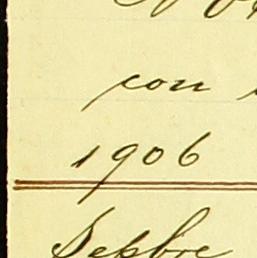 con
1906
Sepbre